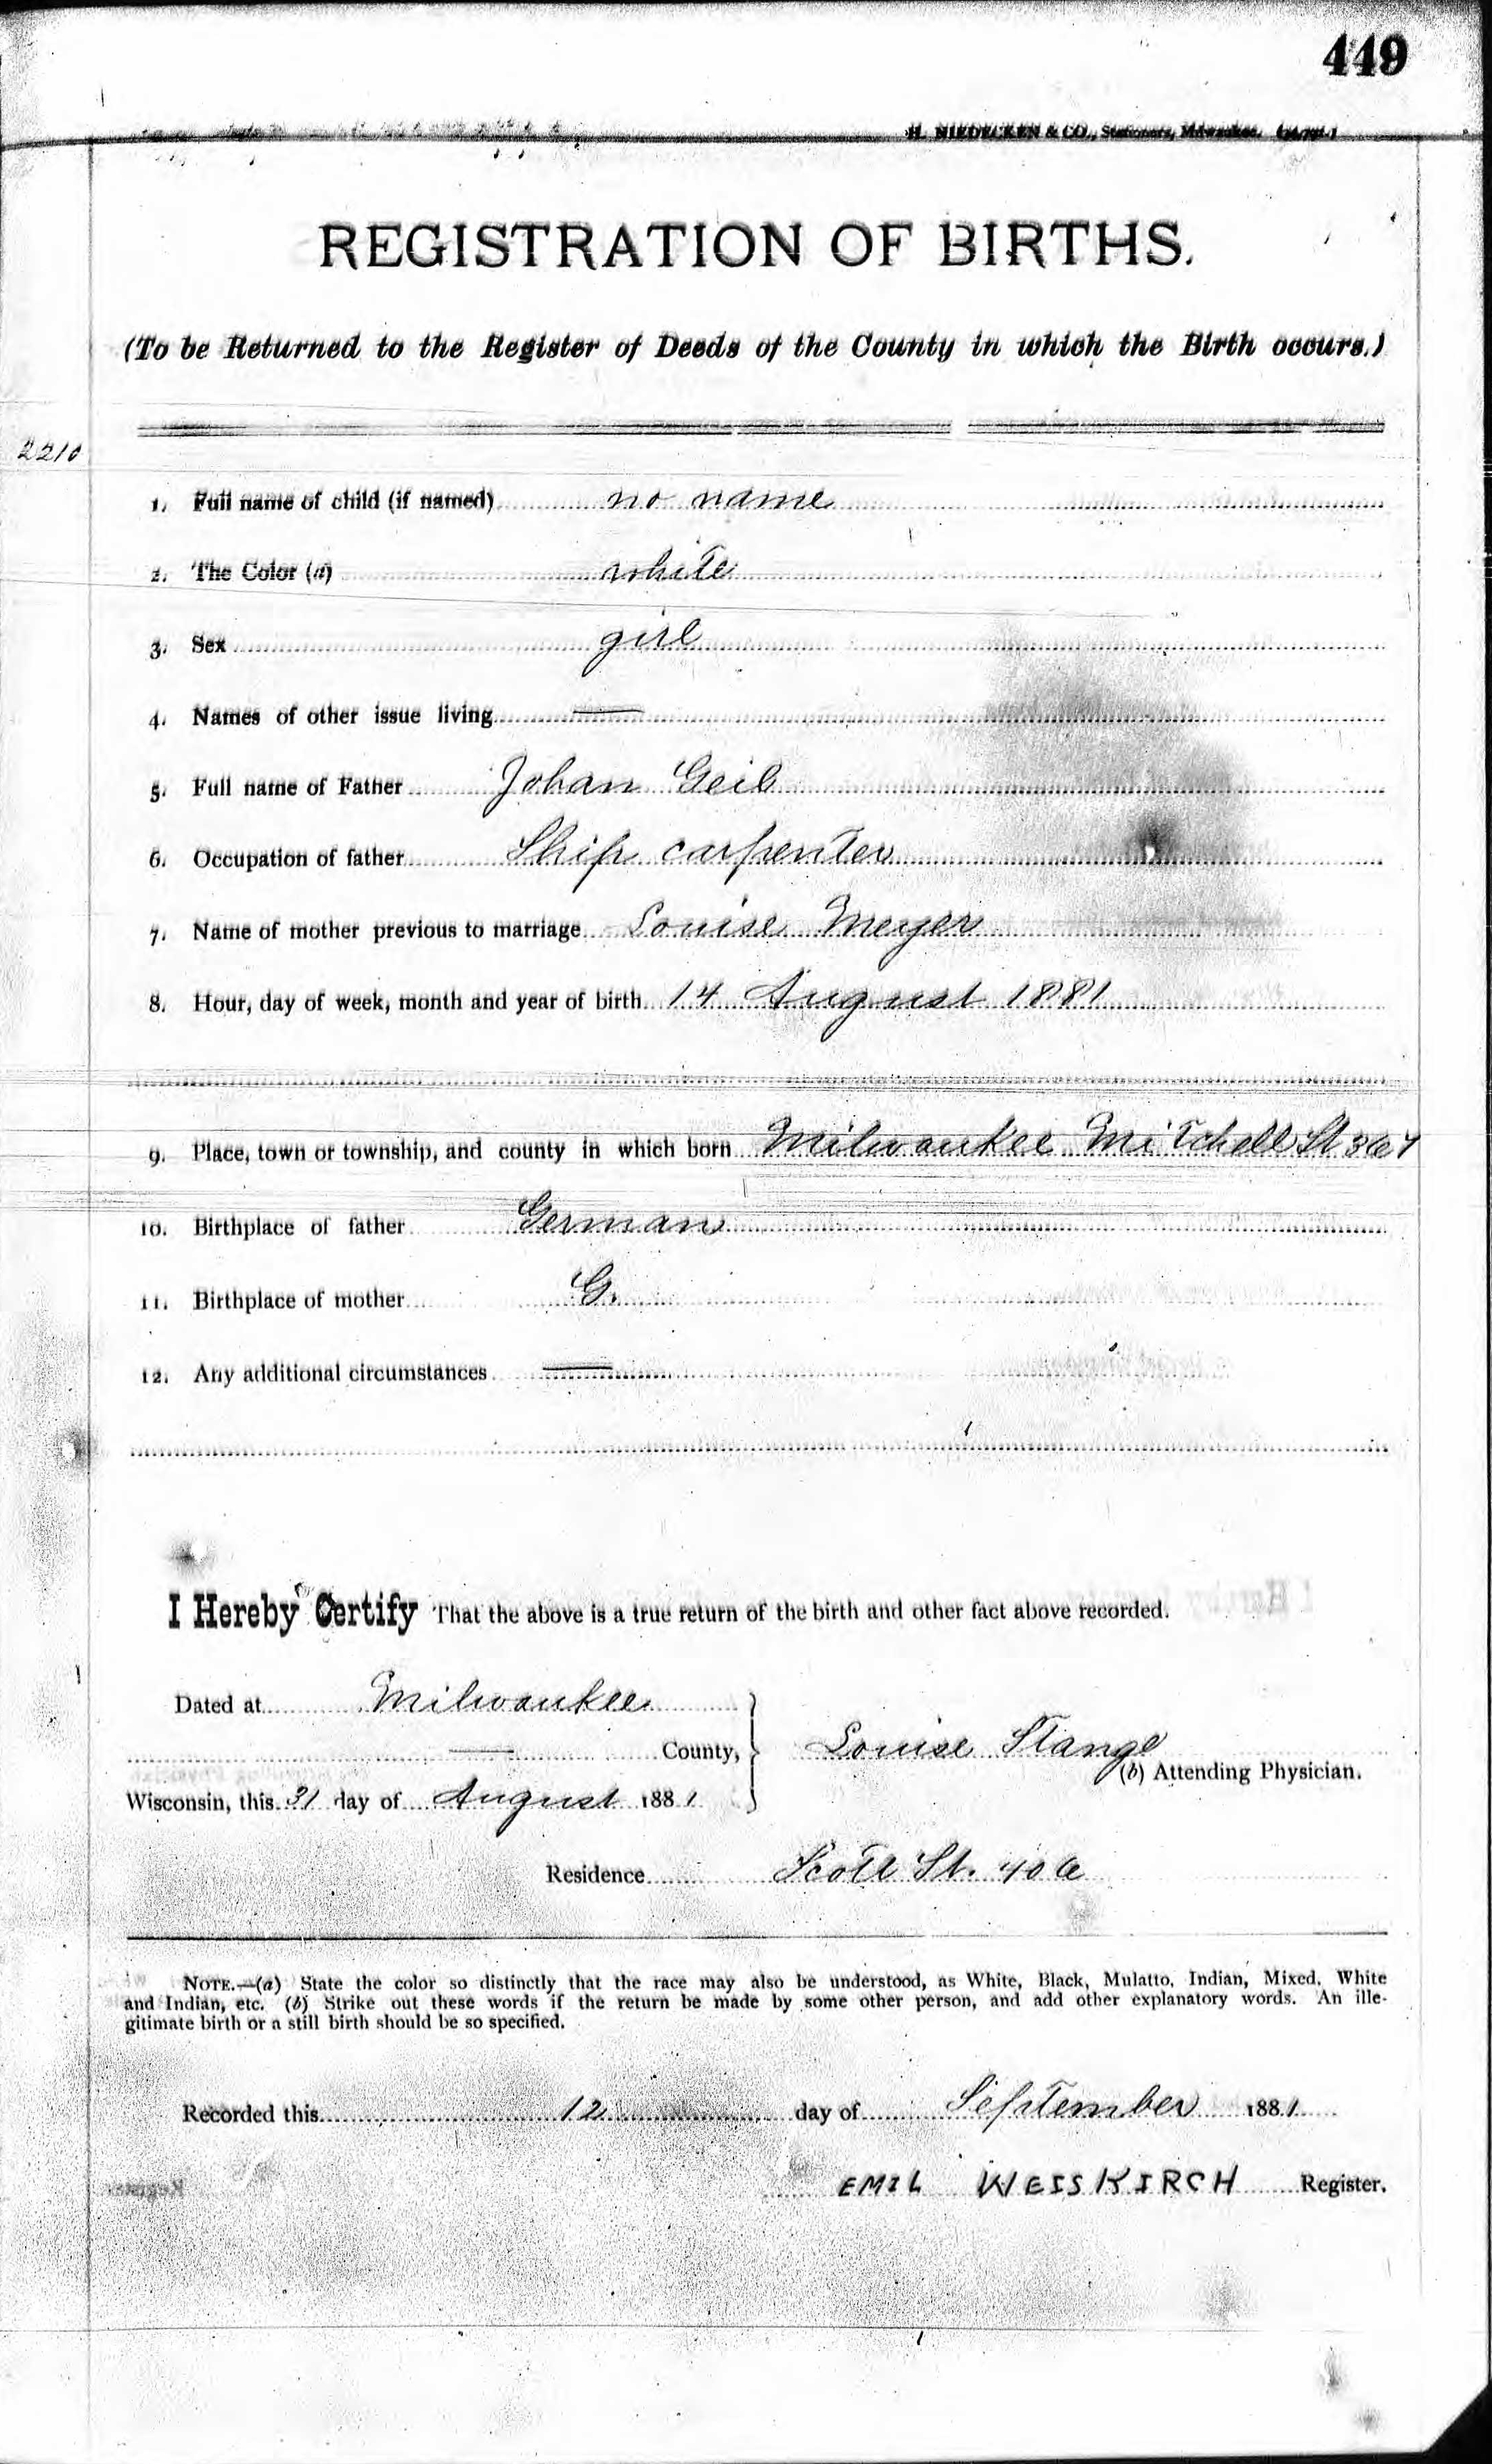 449
H. NIEDECKEN & CO., Stationers, Milwaukee.
REGISTRATION OF BIRTHS.
(To be Returned to the Register of Deeds of the County in which the Birth occurs.)
2210
1. Full name of child (if named) no name
2. The Color (a) white
3. Sex girl
4. Names of other issue living —
5. Full name of Father Johan Geib
6. Occupation of father Ship carpenter
7. Name of mother previous to marriage Louise Meyer
8. Hour, day of week, month and year of birth 14 August 1881
9. Place, town or township, and county in which born Milwaukee Mitchell St 367
10. Birthplace of father German
11. Birthplace of mother G.
12. Any additional circumstances —
I Hereby Certify That the above is a true return of the birth and other fact above recorded.
Dated at Milwaukee
— County,
Louise Stange
(b) Attending Physician.
Wisconsin, this 31 day of August 1881
Residence Scott St. 406
NOTE.—(a) State the color so distinctly that the race may also be understood, as White, Black, Mulatto, Indian, Mixed, White
and Indian, etc. (b) Strike out these words if the return be made by some other person, and add other explanatory words. An ille-
gitimate birth or a still birth should be so specified.
Recorded this 12 day of September 1881
EMIL WEISKIRCH Register.